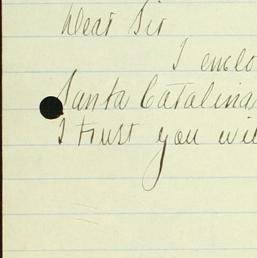 Dear Sir
I enclo
Santa Catalina
I trust you wil